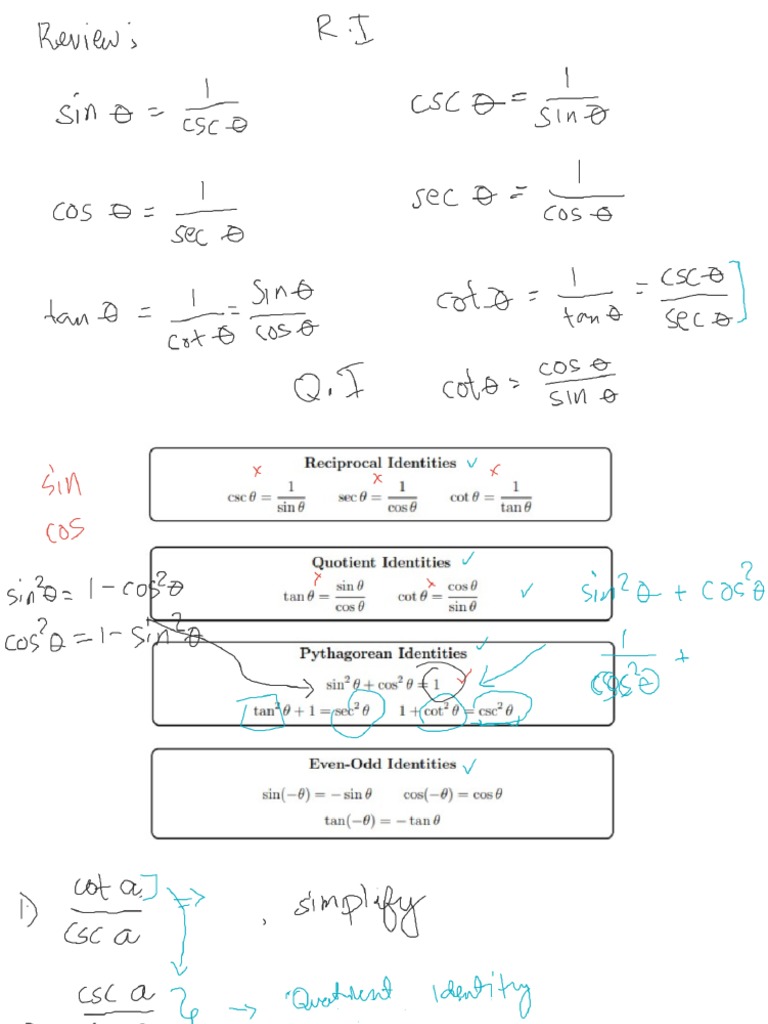 Review: R.I
sin θ = 1/csc θ csc θ = 1/sin θ
cos θ = 1/sec θ sec θ = 1/cos θ
tan θ = 1/cot θ = sin θ/cos θ cot θ = 1/tan θ = csc θ/sec θ
Q.I cot θ = cos θ/sin θ
sin
cos
Reciprocal Identities ✓
csc θ = 1/sin θ sec θ = 1/cos θ cot θ = 1/tan θ
Quotient Identities ✓
tan θ = sin θ/cos θ cot θ = cos θ/sin θ ✓
sin²θ = 1 - cos²θ
cos²θ = 1 - sin²θ
sin²θ + cos²θ
1/cos²θ +
Pythagorean Identities ✓
sin² θ + cos² θ = 1
tan² θ + 1 = sec² θ 1 + cot² θ = csc² θ
Even-Odd Identities ✓
sin(−θ) = − sin θ cos(−θ) = cos θ
tan(−θ) = − tan θ
1) cot a/csc a ⇒ , simplify
csc a → Quotient Identity